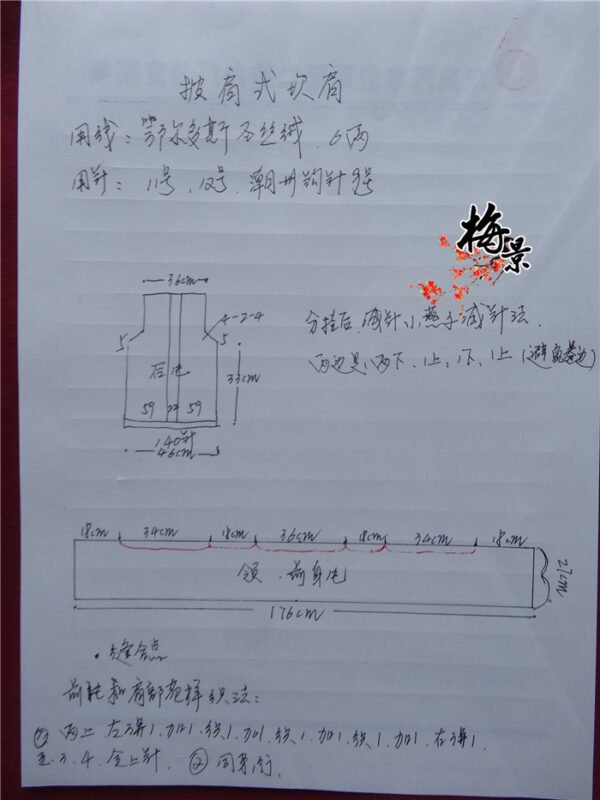 披肩式坎肩
用线：鄂尔多斯圣丝绒，6两
用针：11号，12号，潮州钩针3号
梅景
36cm
4-2-4
5 5
后片
33cm
59 22 59
140针
46cm
分挂后，减针小燕子减针法，
两边是两下，1上，1下，1上（避免卷边）
18cm 34cm 18cm 36cm 18cm 34cm 18cm
领、前身片
27cm
176cm
·缝合点
前片和肩部花样织法：
① 两上 左3算1，加1，织1，加1，织1，加1，织1，加1，右3算1
3、4，全上针，② 同第1行